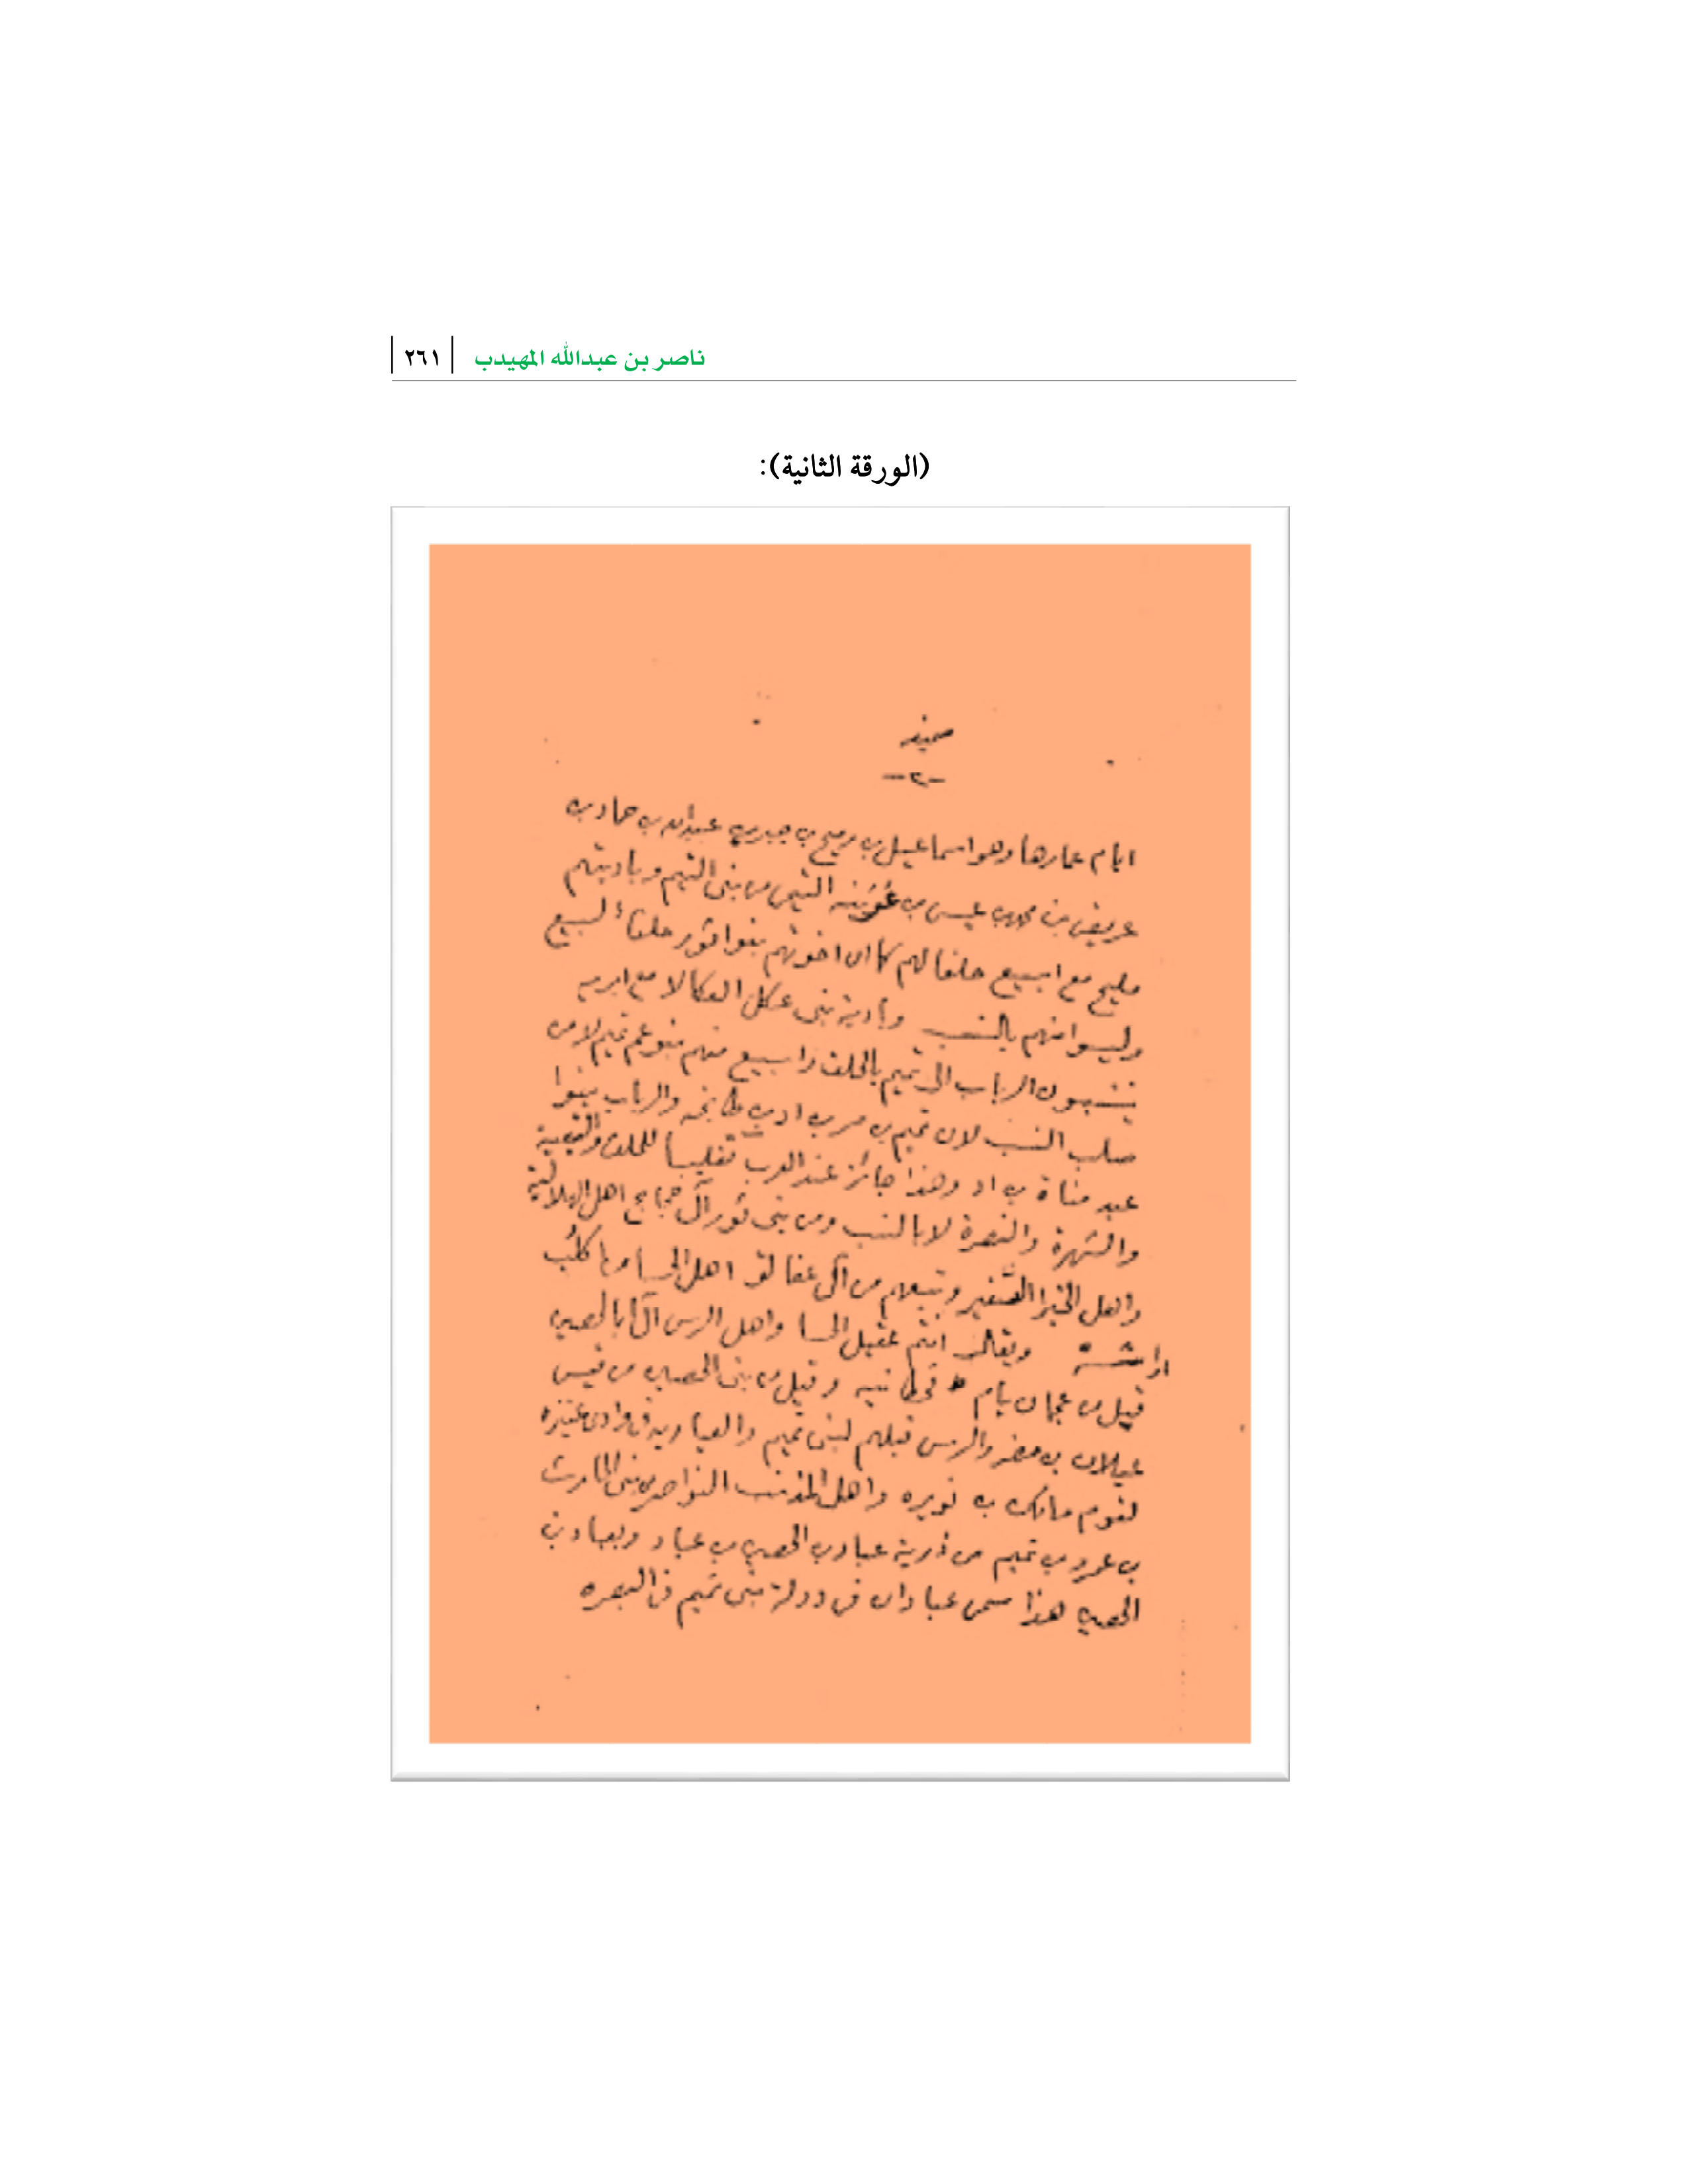 ناصر بن عبدالله المهيدب ٢٦١
(الورقة الثانية):
-٢-
ايام عمارها وهو اسماعيل بن رميح بن جبر بن عبدالله بن حماد بن
عريض بن محمد بن عيسى بن عرينه التيمي من بني التيم وباديتهم
مليح مع اسبيع حلفا لهم كما ان اخوتهم بنوا ثور حلفاء لسبيع
وليسوا منهم بالنسب وبادية بني عكل العكالا مع
ينسبون الرباب الى تميم بالحلف واسبيع منهم بنو عم تميم لا من
صلب النسب لان تميم بن مر بن اد بن طابخه والرباب بنوا
عبد مناة بن اد وهذا جائز عند العرب تغليبا للحلف والتبعية
والشهرة والنصرة لا بالنسب ومن بني ثور آل حجاج اهل الهلالية
واهل الخبرا الصغير وتبعهم من آل عفالق اهل الحسا
ويقال انهم عقيل الحسا واهل الرس آل ابا لحصين
قيل من عجمان يام قحطانيه وقيل من بني الحصين من قيس
عيلان بن مضر والرس قبلهم لبني تميم والعيارية في وادي عنيزه
لقوم مالك بن نويره واهل المذنب النواصر من بني الحارث
بن عمرو بن تميم من ذرية عباد بن الحصين بن عباد وبعباد بن
الحصين هذا سمي عبادان في دولة بني تميم في البصره